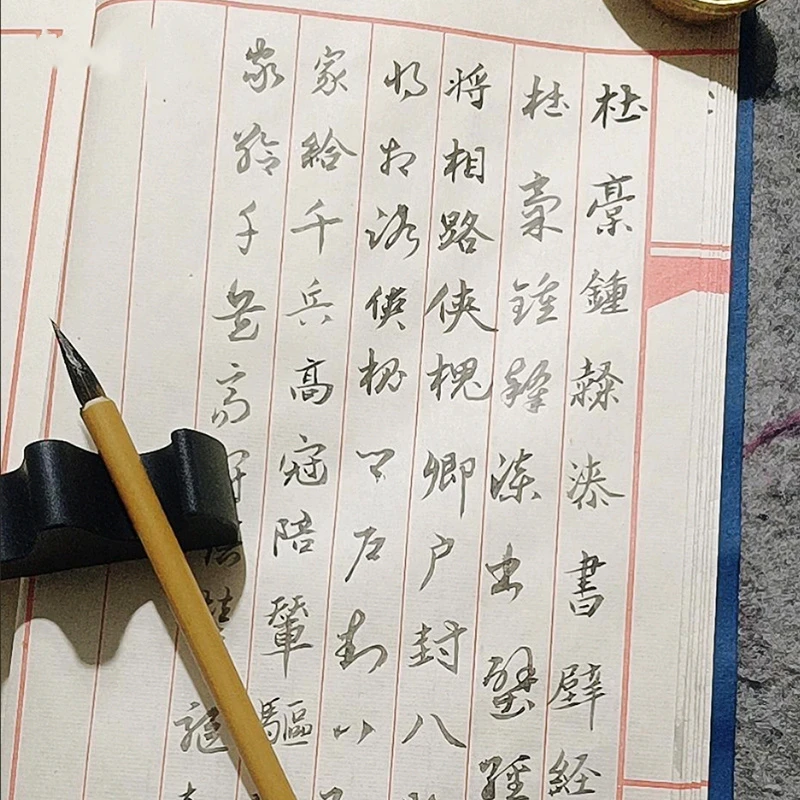 杜稾鍾隸漆書壁経
杜稾鍾隸漆書壁経
将相路俠槐卿户封八
将相路俠槐卿户封八
家給千兵高冠陪輦驅
家給千兵高冠驅